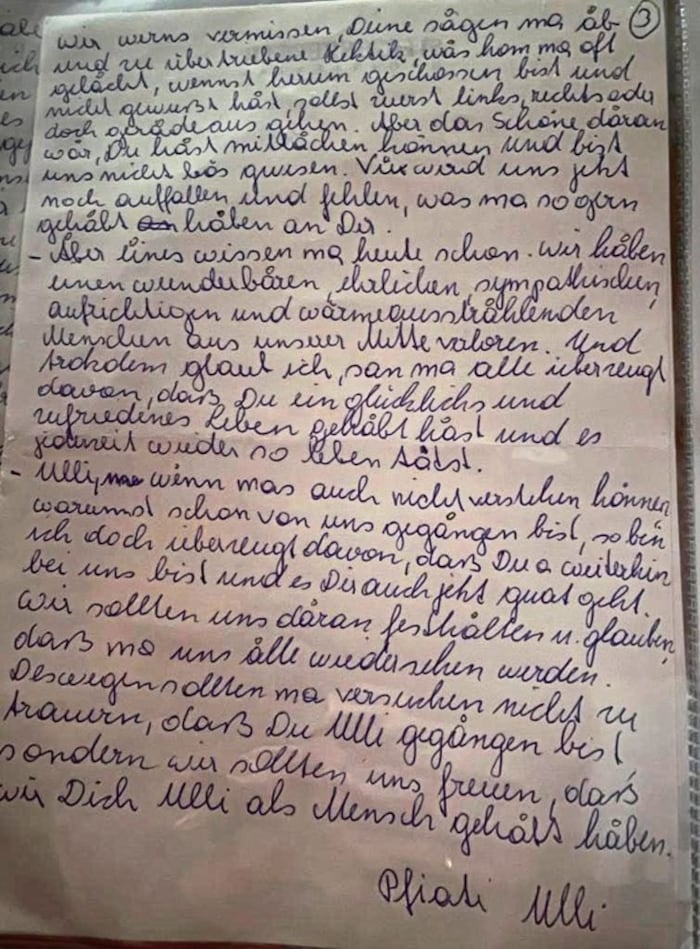 wir werns vermissen, Deine sågen ma åb ③
und zu übertriebene Hektik, wås hom ma oft
gelåcht, wennst herum geschossen bist und
nicht gewußt håst, sollst zuerst links, rechts oder
doch geråde aus gehen. Åber das Schöne dåran
wår, Du håst mitlåchen können und bist
uns nicht bös gwesen. Vüx wird uns jetzt
noch auffallen und fehlen, was ma so gern
gehåbt håben an Dir.
- Åber eines wissen ma heute schon. Wir håben
einen wunderbåren, ehrlichen, sympathischen,
aufrichtigen und wärmeausstråhlenden
Menschen aus unserer Mitte valoren. Und
trotzdem glaub ich, san ma alle überzeugt
davon, daß Du ein glücklichs und
zufriedenes Leben gehåbt håst und es
jederzeit wieder so leben tåtst.
- Ulli, wenn mas auch nicht verstehen können
warumst schon von uns gegången bist, so bin
ich doch überzeugt davon, daß Du a weiterhin
bei uns bist und es Dir auch jetzt guat geht.
Wir sollten uns dåran festhålten u. glauben,
daß ma uns ålle wiedersehen werden.
Deswegen sollten ma versuchen nicht zu
trauern, daß Du Ulli gegången bist
sondern wir sollten uns freuen, daß
wir Dich Ulli als Mensch gehåbt håben.
Pfiati Ulli